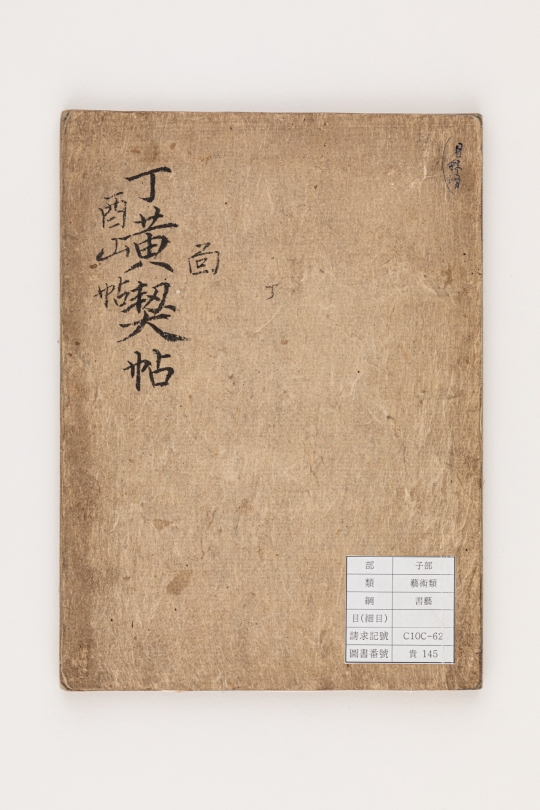 丁黃契帖
酉山帖
丁
部 子部
類 藝術類
綱 書藝
目(細目)
請求記號 C10C-62
圖書番號 貴 145